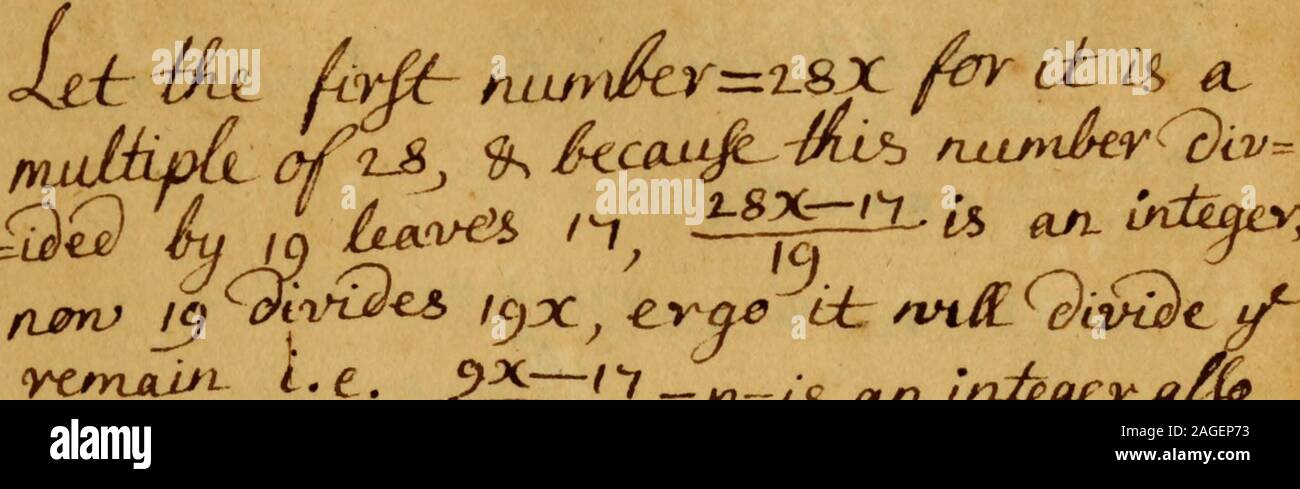 Let the firſt number=28x for it is a
multiple of 28, & becauſe this number div=
=ided by 19 leaves 17, 28x—17/19 is an integer,
now 19 divides 19x, ergo it will divide yᵉ
remain i.e. 9x—17 =n=is an integer alſo
alamy
Image ID: 2AGEP73
www.alamy.com